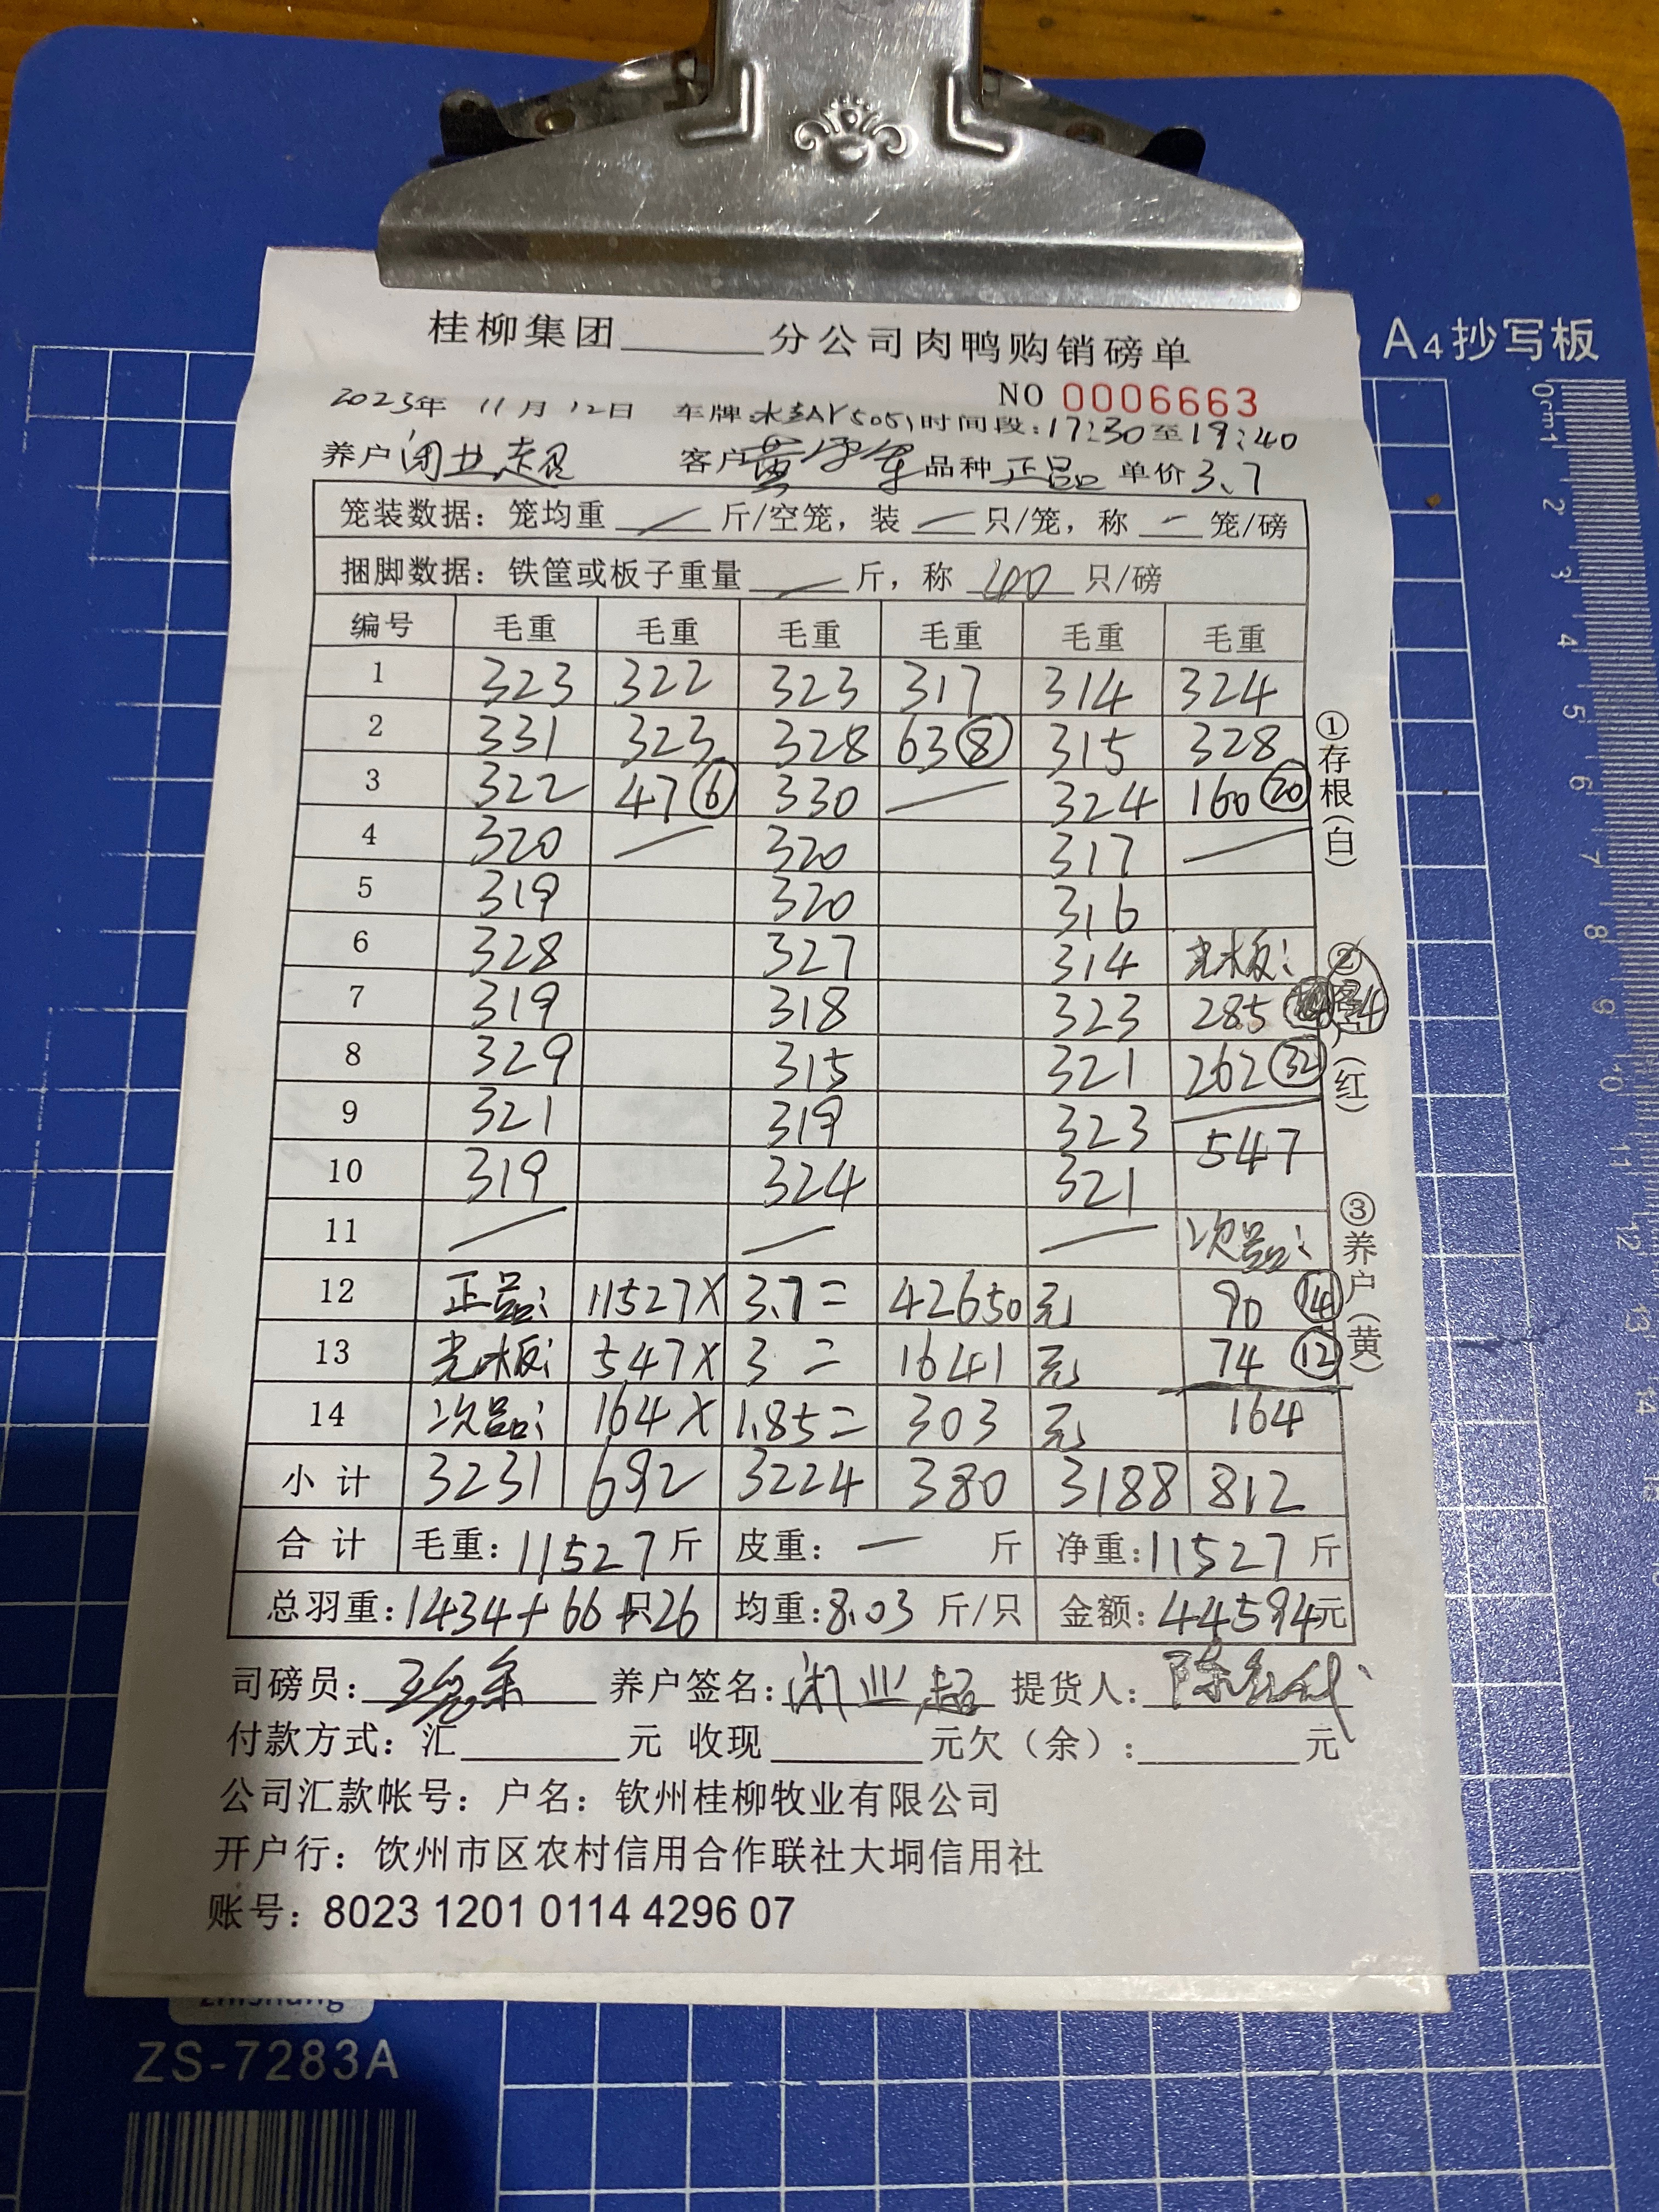 A4抄写板
桂柳集团______分公司肉鸭购销磅单
NO 0006663
2023年 11月 12日 车牌: 时间段:17:30至19:40
养户闭业超 客户黄 品种正品 单价3.7
笼装数据:笼均重 / 斤/空笼,装 / 只/笼,称 - 笼/磅
捆脚数据:铁筐或板子重量 / 斤,称 100 只/磅
编号 毛重 毛重 毛重 毛重 毛重 毛重
1 323 322 323 317 314 324
2 331 323 328 63⑧ 315 328
3 322 47⑥ 330 / 324 160⑳
4 320 / 320 317 /
5 319 320 316
6 328 327 314 光板:
7 319 318 323 285 34
8 329 315 321 262㉜
9 321 319 323 547
10 319 324 321
11 / / / 次品:
12 正品: 11527× 3.7= 42650 元 90 ⑭
13 光板: 547× 3= 1641 元 74 ⑫
14 次品: 164× 1.85= 303 元 164
小计 3231 692 3224 380 3188 812
合计 毛重:11527斤 皮重: 一 斤 净重:11527斤
总羽重:1434+66+26只 均重:8.03斤/只 金额:44594元
司磅员: 养户签名:闭业超 提货人:陈
付款方式:汇______元 收现______元欠(余):______元
公司汇款帐号:户名:钦州桂柳牧业有限公司
开户行:钦州市区农村信用合作联社大垌信用社
账号:8023 1201 0114 4296 07
①存根(白)
②客户(红)
③养户(黄)
zhishang
ZS-7283A
0cm1 2 3 4 5 6 7 8 9 10 11 12 13 14